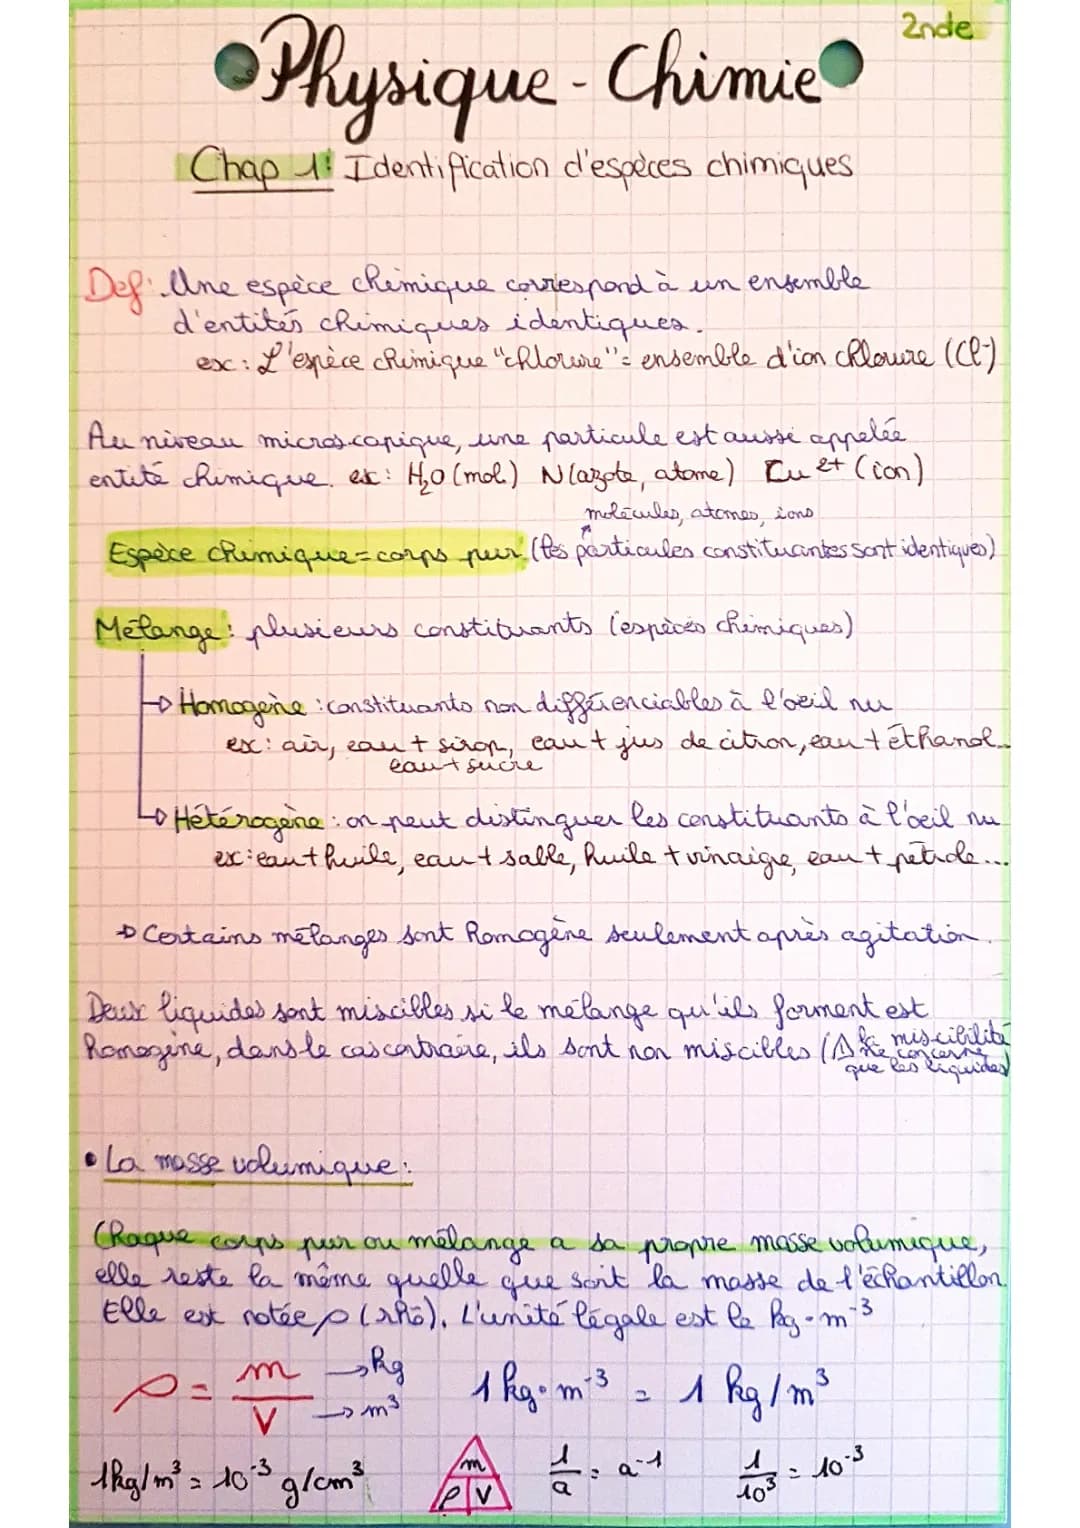 2nde
Physique-Chimie
Chap 1: Identification d'espèces chimiques
Def: Une espèce chimique correspond à un ensemble
d'entités chimiques identiques.
ex: L'espèce chimique "chlorure"= ensemble d'ion chlorure (Cl-)
Au niveau microscopique, une particule est aussi appelée
entité chimique. ex: H₂O (mol.) N (azote, atome) Cu²⁺ (ion)
molécules, atomes, ions
Espèce chimique = corps pur (les particules constituantes sont identiques)
Mélange: plusieurs constituants (espèces chimiques)
→ Homogène : constituants non différenciables à l'oeil nu
ex: air, eau + sirop, eau + jus de citron, eau + éthanol...
eau + sucre
→ Hétérogène : on peut distinguer les constituants à l'oeil nu
ex: eau + huile, eau + sable, huile + vinaigre, eau + pétrole...
→ Certains mélanges sont homogène seulement après agitation.
Deux liquides sont miscibles si le mélange qu'ils forment est
homogène, dans le cas contraire, ils sont non miscibles (⚠ la miscibilité
ne concerne
que les liquides)
• La masse volumique:
Chaque corps pur ou mélange a sa propre masse volumique,
elle reste la même quelle que soit la masse de l'échantillon
Elle est notée ρ (rhô). L'unité légale est le kg·m⁻³
ρ = m/V → kg → m³ 1 kg·m⁻³ = 1 kg/m³
1kg/m³ = 10⁻³ g/cm³ m ρ V 1/a = a⁻¹ 1/10³ = 10⁻³